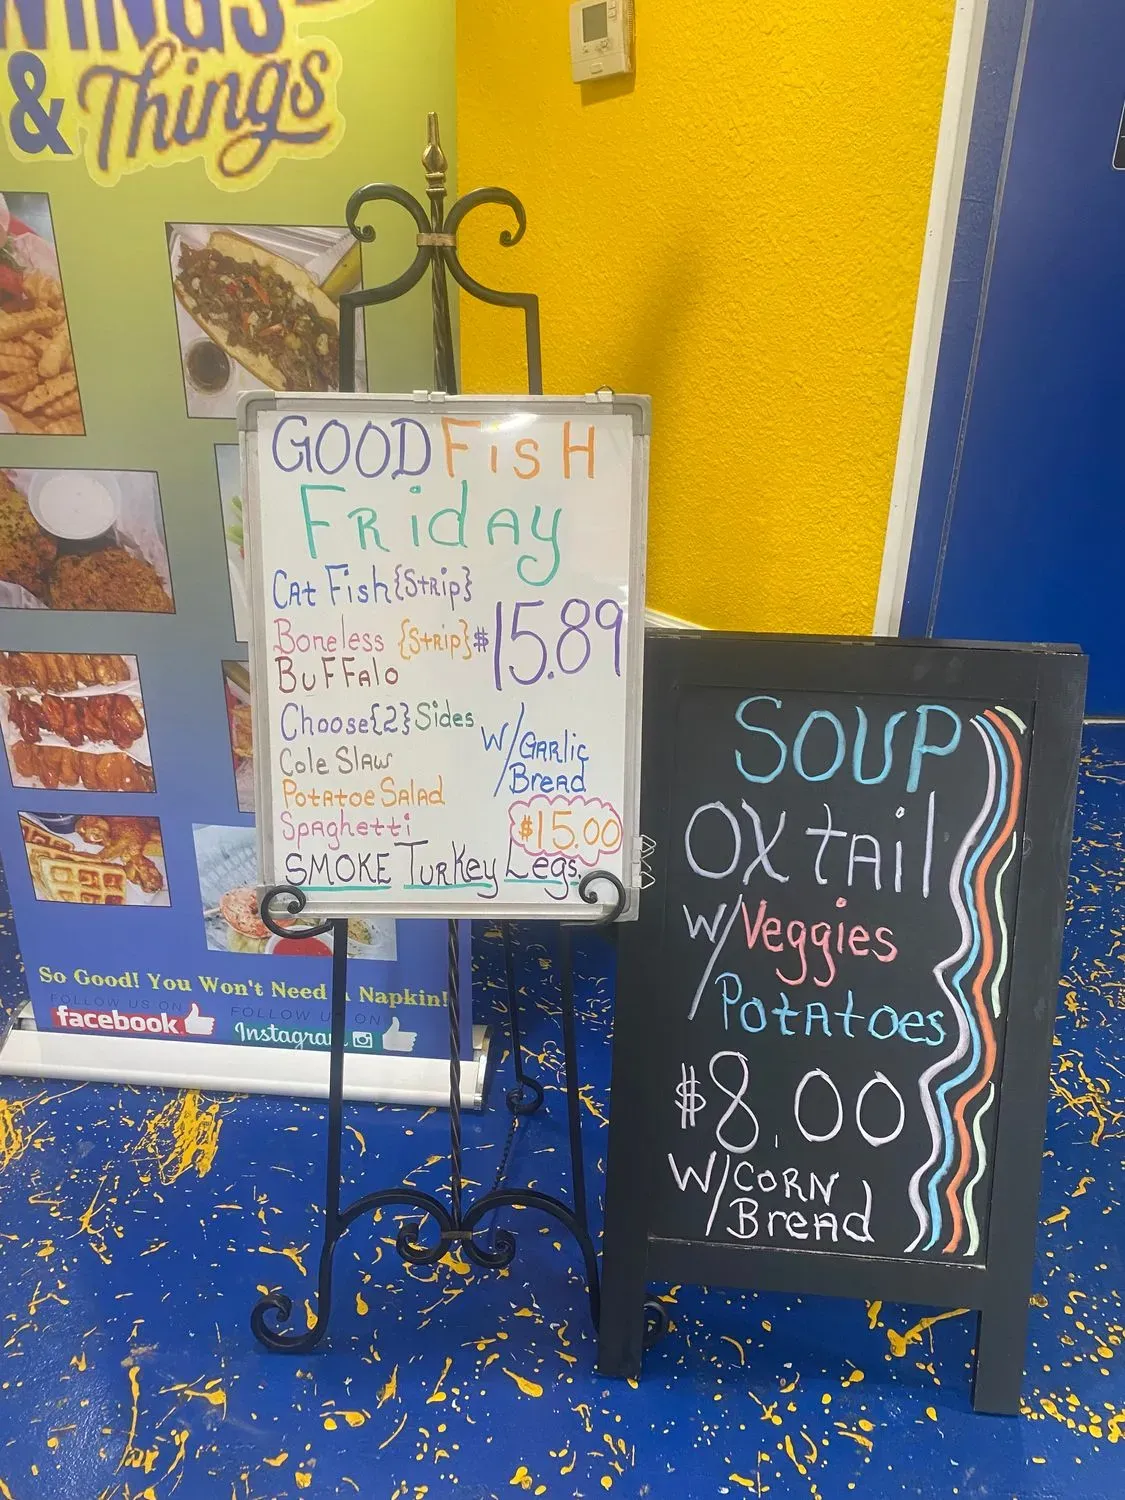 WINGS
& Things
So Good! You Won't Need A Napkin!
FOLLOW US ON
facebook
FOLLOW US ON
Instagram
GOOD FisH
FRidAy
CAt Fish {StRip}
Boneless {StRip} $15.89
BuFFAlo
Choose {2} Sides
W/GARlic
BreAd
Cole Slaw
PotAtoe SalAd
SpAghetti
$15.00
SMOKE TuRKey Legs.
SOUP
OX tAil
W/Veggies
PotAtoes
$8.00
W/CORN
BreAd